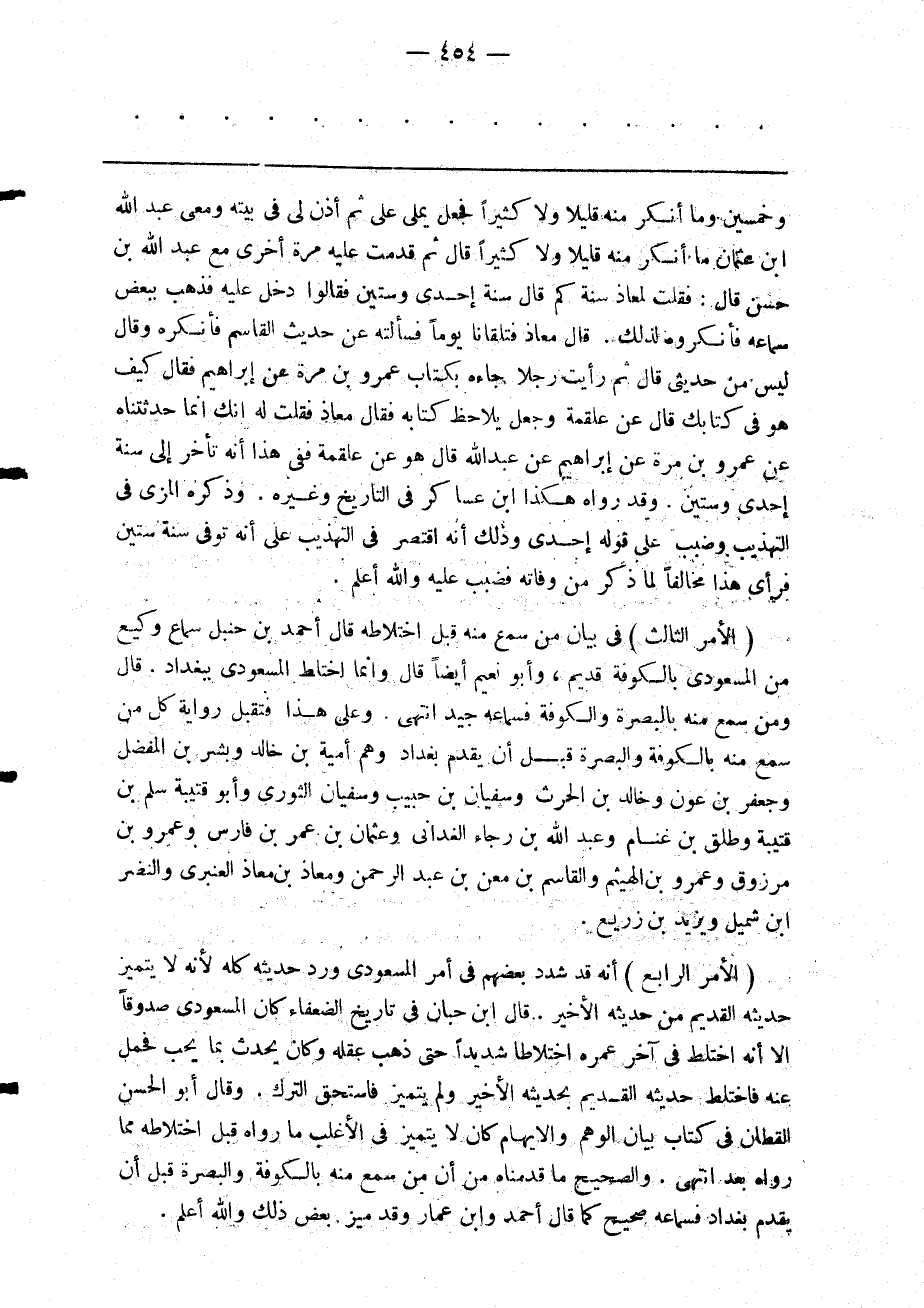 — ٤٥٤ —
. . . . . . . . . . . . . . .
وخمسين وما أنكر منه قليلا ولا كثيراً فجعل يملى على ثم أذن لى فى بيته ومعى عبد الله
ابن عثمان ما أنكر منه قليلا ولا كثيراً قال ثم قدمت عليه مرة أخرى مع عبد الله بن
حسن قال : فقلت لمعاذ سنة كم قال سنة إحدى وستين فقالوا دخل عليه فذهب ببعض
سماعه فأنكروه لذلك . قال معاذ فتلقانا يوماً فسألته عن حديث القاسم فأنكره وقال
ليس من حديثى قال ثم رأيت رجلا جاءه بكتاب عمرو بن مرة عن إبراهيم فقال كيف
هو فى كتابك قال عن علقمة وجعل يلاحظ كتابه فقال معاذ فقلت له انك انما حدثتناه
عن عمرو بن مرة عن إبراهيم عن عبدالله قال هو عن علقمة ففى هذا أنه تأخر إلى سنة
إحدى وستين . وقد رواه هكذا ابن عساكر فى التاريخ وغيره . وذكره المزى فى
التهذيب وضبب على قوله إحدى وذلك أنه اقتصر فى التهذيب على أنه توفى سنة ستين
فرأى هذا مخالفاً لما ذكر من وفاته فضبب عليه والله أعلم .
( الأمر الثالث ) فى بيان من سمع منه قبل اختلاطه قال أحمد بن حنبل سماع وكيع
من المسعودى بالكوفة قديم ، وأبو نعيم أيضاً قال وانما اختلط المسعودى ببغداد . قال
ومن سمع منه بالبصرة والكوفة فسماعه جيد انتهى . وعلى هذا فتقبل رواية كل من
سمع منه بالكوفة والبصرة قبل أن يقدم بغداد وهم أمية بن خالد وبشر بن المفضل
وجعفر بن عون وخالد بن الحرث وسفيان بن حبيب وسفيان الثورى وأبو قتيبة سلم بن
قتيبة وطلق بن غنام وعبد الله بن رجاء الغدانى وعثمان بن عمر بن فارس وعمرو بن
مرزوق وعمرو بن الهيثم والقاسم بن معن بن عبد الرحمن ومعاذ بن معاذ العنبرى والنضر
ابن شميل ويزيد بن زريع .
( الأمر الرابع ) أنه قد شدد بعضهم فى أمر المسعودى ورد حديثه كله لأنه لا يتميز
حديثه القديم من حديثه الأخير . قال ابن حبان فى تاريخ الضعفاء كان المسعودى صدوقاً
الا أنه اختلط فى آخر عمره اختلاطا شديداً حتى ذهب عقله وكان يحدث بما يحب فحمل
عنه فاختلط حديثه القديم بحديثه الأخير ولم يتميز فاستحق الترك . وقال أبو الحسن
القطان فى كتاب بيان الوهم والايهام كان لا يتميز فى الأغلب ما رواه قبل اختلاطه مما
رواه بعد انتهى . والصحيح ما قدمناه من أن من سمع منه بالكوفة والبصرة قبل أن
يقدم بغداد فسماعه صحيح كما قال أحمد وابن عمار وقد ميز بعض ذلك والله أعلم .